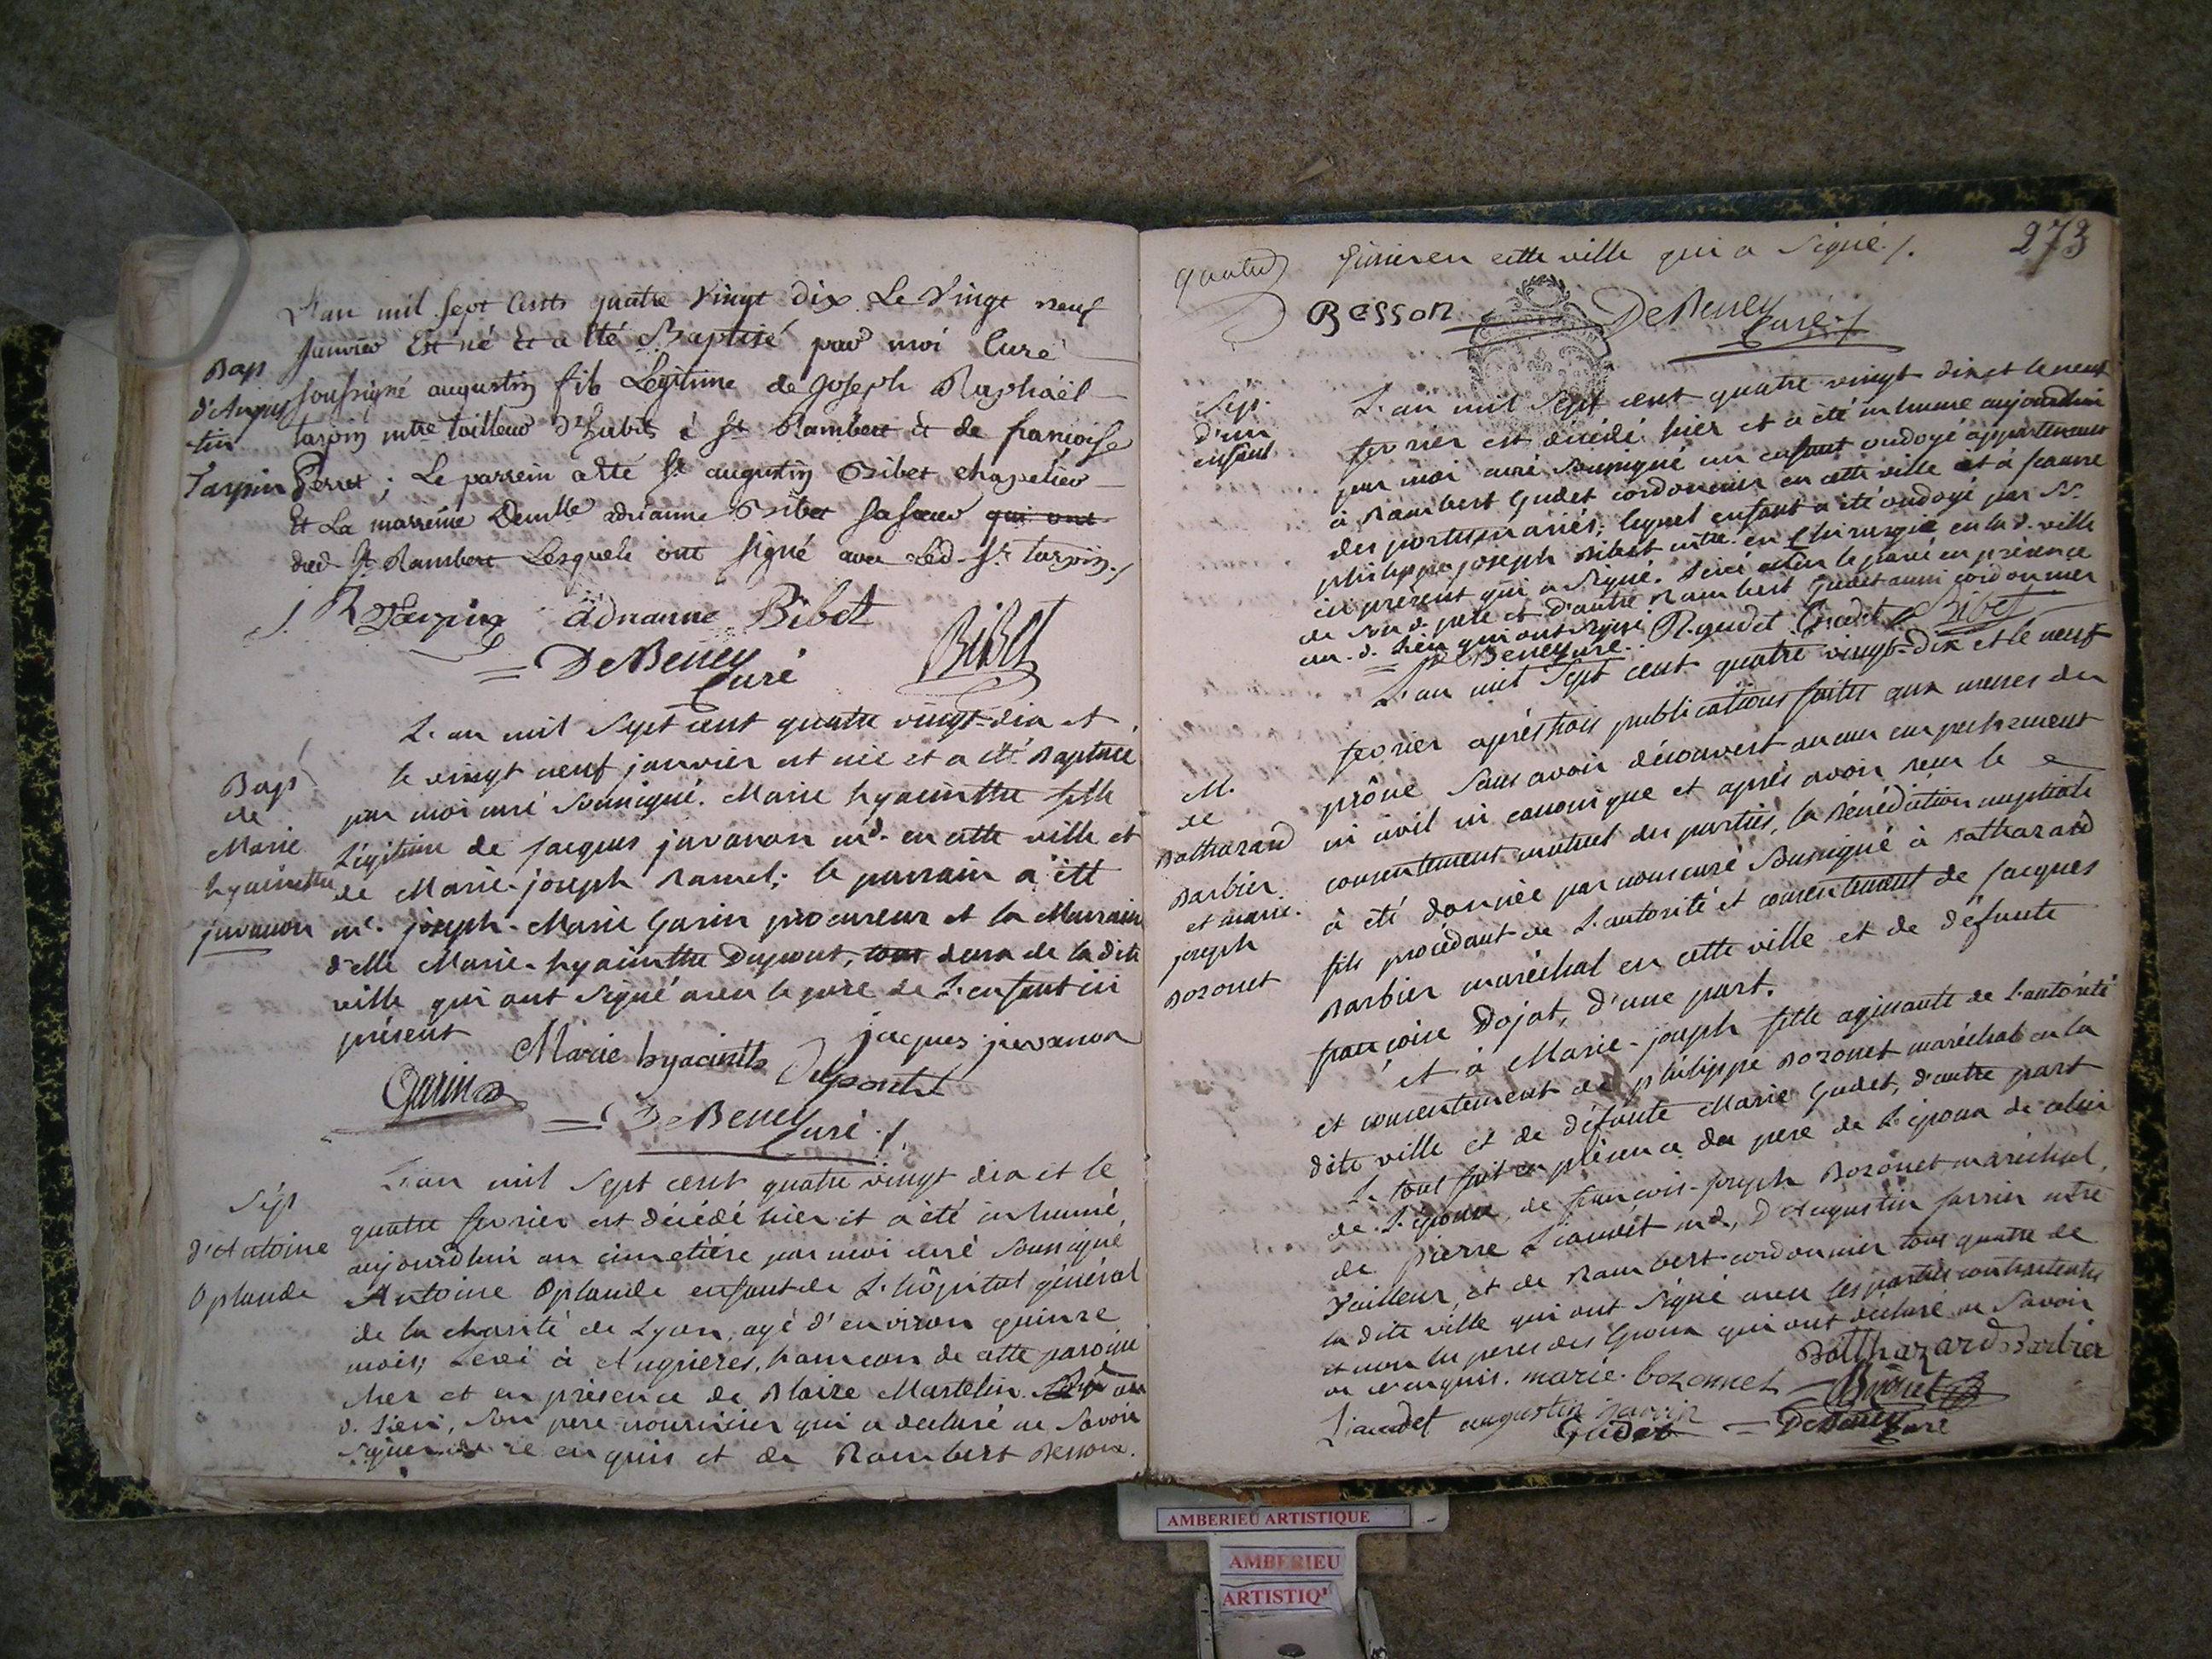 L'an mil sept cents quatre vingt dix Le vingt neuf
Janvier Est né et a été Baptisé par moi Curé
Bap soussigné augustin fils Legitime de Joseph Raphaël
d'Augus
tin tarpin mtre tailleur d'habits à St Rambert et de françoise
Tarpin Perret ; Le parrein a été Sr augustin Bibet chapelier
Et La marreine Demlle adrianne Bibet sa sœur qui ont
dud St Rambert Lesquels ont signé avec Led. Sr tarpin ./
J. R Tarpin adrianne Bibet
BiBet
= DeBeney
Curé
L'an mil sept cent quatre vingt-dix et
le vingt neuf janvier est née et a été Baptisée
Bap
de
Marie
hyacinthe
juvanon
par moi curé soussigné. Marie hyacinthe fille
Légitime de Jacques juvanon md. en cette ville et
de Marie-joseph Ramel ; le parrain a été
me. joseph-Marie Garin procureur et la Marraine
d'elle Marie-hyacinthe Dupont, tous deux de la dite
ville qui ont signé avec le père de L'enfant ici
présent
jacques juvanon
Marie hyacinthe Dupont
Garin
= DeBeney
Curé ./.
L'an mil sept cent quatre vingt dix et le
Sép
d'Antoine
Oplande
quatre fevrier est décédé hier et a été inhumé
aujourdhui au cimetière par moi curé soussigné
Antoine Oplande enfant de L'hôpital général
de la charité de Lyon, agé d'environ quinze
mois, Levé à Angrieres, hameau de cette paroisse
hier et en présence de Blaise Martelin
d. Lieu, son pere nourricier qui a déclaré ne savoir
signer de ce enquis et de Rambert Besson.
273
fusier en cette ville qui a signé ./.
Besson DeBeney
Curé ./
Sép.
d'un
enfant
L'an mil sept cent quatre vingt dix et le neuf
fevrier est décédé hier et a été inhumé aujourdhui
par moi curé soussigné un enfant ondoyé appartenant
à Rambert Gudet cordonnier en cette ville et à jeanne
des portes mariés ; lequel enfant a été ondoyé par Sr.
philippe joseph Bibet mtre en Chirurgie en lad. ville
ici présent qui a signé. Levé le jour en présence
de son d. père et d'autre Rambert Gudet aussi cordonnier
au d. Lieu qui ont signé R. gudet Gudet Bibet
= DeBeney curé.
L'an mil sept cent quatre vingt-dix et le neuf
M.
de
Balthazard
Barbier
et marie.
joseph
Bozonet
fevrier après trois publications faites aux messes du
prône sans avoir découvert aucun empechement
ni civil ni canonique et après avoir reçu le
consentement mutuel des parties, la Bénédiction nuptiale
a été donnée par nous curé soussigné à Balthazard
fils procédant de L'autorité et consentement de Jacques
Barbier maréchal en cette ville et de défunte
françoise Dojat, d'une part.
et à Marie-joseph fille agissante de L'autorité
et consentement de philippe Bozonet maréchal en la
dite ville et de défunte Marie Gudet, d'autre part
Le tout fait en présence du pere de L'époux de celui
de L'épouse, de françois-joseph Bozonet maréchal,
de pierre Liaudet md., d'Augustin farrier mtre
Tailleur, et de Rambert cordonnier tous quatre de
la dite ville qui ont signé avec les parties contractantes
et non les peres des Epoux qui ont déclaré ne savoir
de ce enquis. marie. bozonnet Balthazard Barbier
Liaudet augustin Bozonet
Gudet = DeBeney
Curé
AMBERIEU ARTISTIQUE
AMBERIEU
ARTISTIQ'